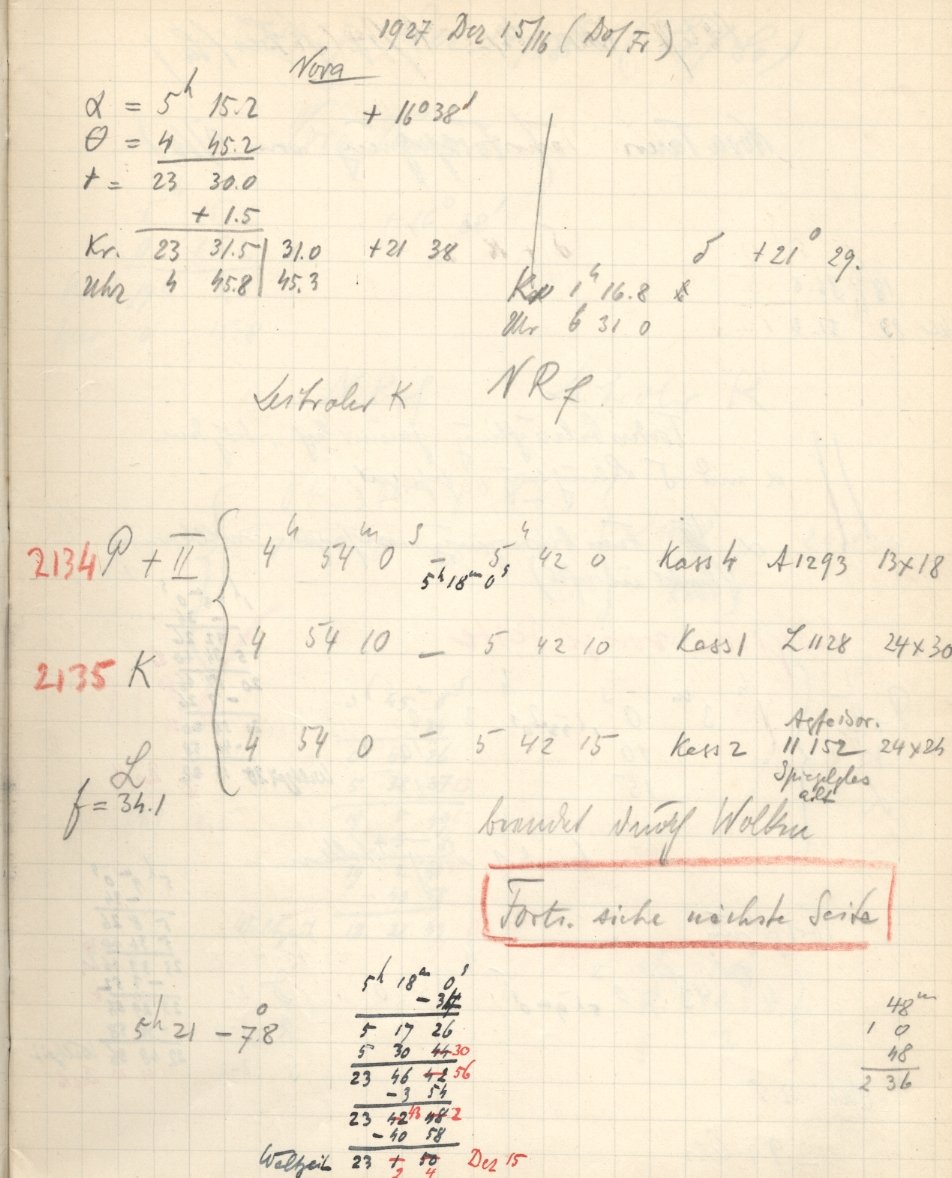 1927 Dez 15/16 (Do/Fr)
Nova
α = 5h 15.2 + 16° 38'
θ = 4 45.2
t = 23 30.0
+ 1.5
Kr. 23 31.5 | 31.0 +21 38
Uhr 4 45.8 | 45.3
δ +21° 29.
Kr 1h 16.8
Uhr 6 31 0
Leitrohr K NRf
2134 P + II 4h 54m 0s – 5h 42 0 Kass 4 A1293 13×18
5h 18m 0s
2135 K 4 54 10 – 5 42 10 Kass 1 L 1128 24×30
Agfaisor.
L 4 54 0 – 5 42 15 Kass 2 11.152 24×24
Spiegelglas
alt
f = 34.1
beendet durch Wolken
Forts. siehe nächste Seite
5h 18m 0s
- 34
5h 21 – 7.8°
5 17 26
5 30 44 30
23 46 42 56
- 3 54
23 42 43 48 2
- 40 58
Weltzeit 23 1 50 Dez 15
2 4
48m
1 0
48
2 36